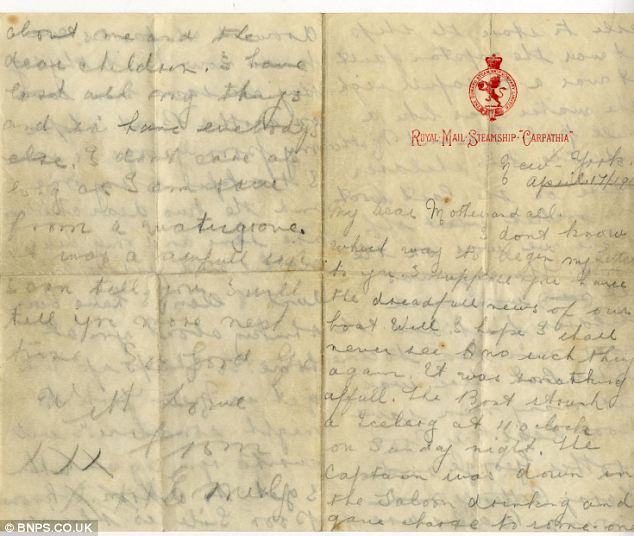 ROYAL·MAIL·STEAMSHIP·"CARPATHIA"
New York
April 17/19
My dear Mother and all.
I dont know
what way to begin my letter
to you I suppose you have
the dreadfull news of our
boat Well I hope I shall
never see no such thing
again. It was something
affull. The Boat struck
a Iceberg at 11 oclock
on Sunday night. The
Captain was down in
the Saloon drinking and
gave charge to some one
about me and the
dear children. I have
lost all my things
and so have everybody
else, I dont care as
long as I am save
from a watergrave.
I was a awfull
I can tell you I will
tell you more next
time. So good
With Love
from
XXX
Emily
© BNPS.CO.UK